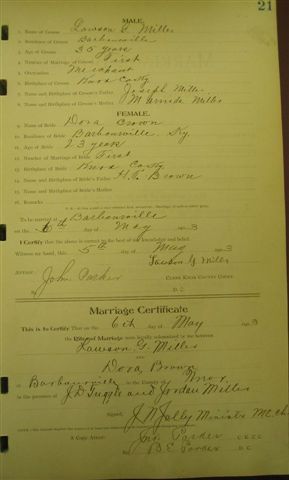 21
MALE.
1. Name of Groom Lawson G. Miller
2. Residence of Groom Barbourville
3. Age of Groom 35 years
4. Number of Marriage of Groom First
5. Occupation Merchant
6. Birthplace of Groom Knox Co Ky
7. Name and Birthplace of Groom's Father Joseph Miller
8. Name and Birthplace of Groom's Mother Miller
FEMALE.
9. Name of Bride Dora Brown
10. Residence of Bride Barbourville, Ky
11. Age of Bride 23 years
12. Number of Marriage of Bride First
13. Birthplace of Bride Knox Co Ky
14. Name and Birthplace of Bride's Father Brown
15. Name and Birthplace of Bride's Mother
16. Remarks
To be married at Barbourville
on the 6th day of May 3
I Certify that the above is correct to the best of my knowledge and belief.
Witness my hand, this 5th day of May 3
Lawson G. Miller
Attest: John Parker
Clerk Knox County Court
D.C.
Marriage Certificate
This is to Certify That on the 6th day of May 3
the Rites of Marriage were legally solemnized by me between
Lawson G. Miller
and
Dora Brown
at Barbourville in the County of Knox
in the presence of J. D. Tuggle and Jordan Miller
Signed, Minister M.E. Ch
A Copy Attest: Jno. Parker
B. E. Parker D.C.